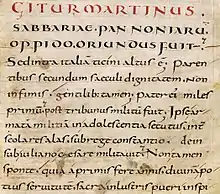 GITURMARTINUS
SABBARIAE. PANNONIARŪ.
OPPIDO. ORIUNDUS FUIT.
Sedintra italiā ticini altus ē; Paren
tibus secundum saeculi dignitatem. Non
infimis. gentilib; tamen; Pater ei miles
primū. post tribunus militū fuit; Ipse ar
matā militiā inadolescentia secutus. int
scolares alas. sub rege constantio. dein
sub iuliano cesare militavit; Non tamen
sponte. quia a primis fere annis. divinā po
tius servitutē. sacra inlustris pueri inspi